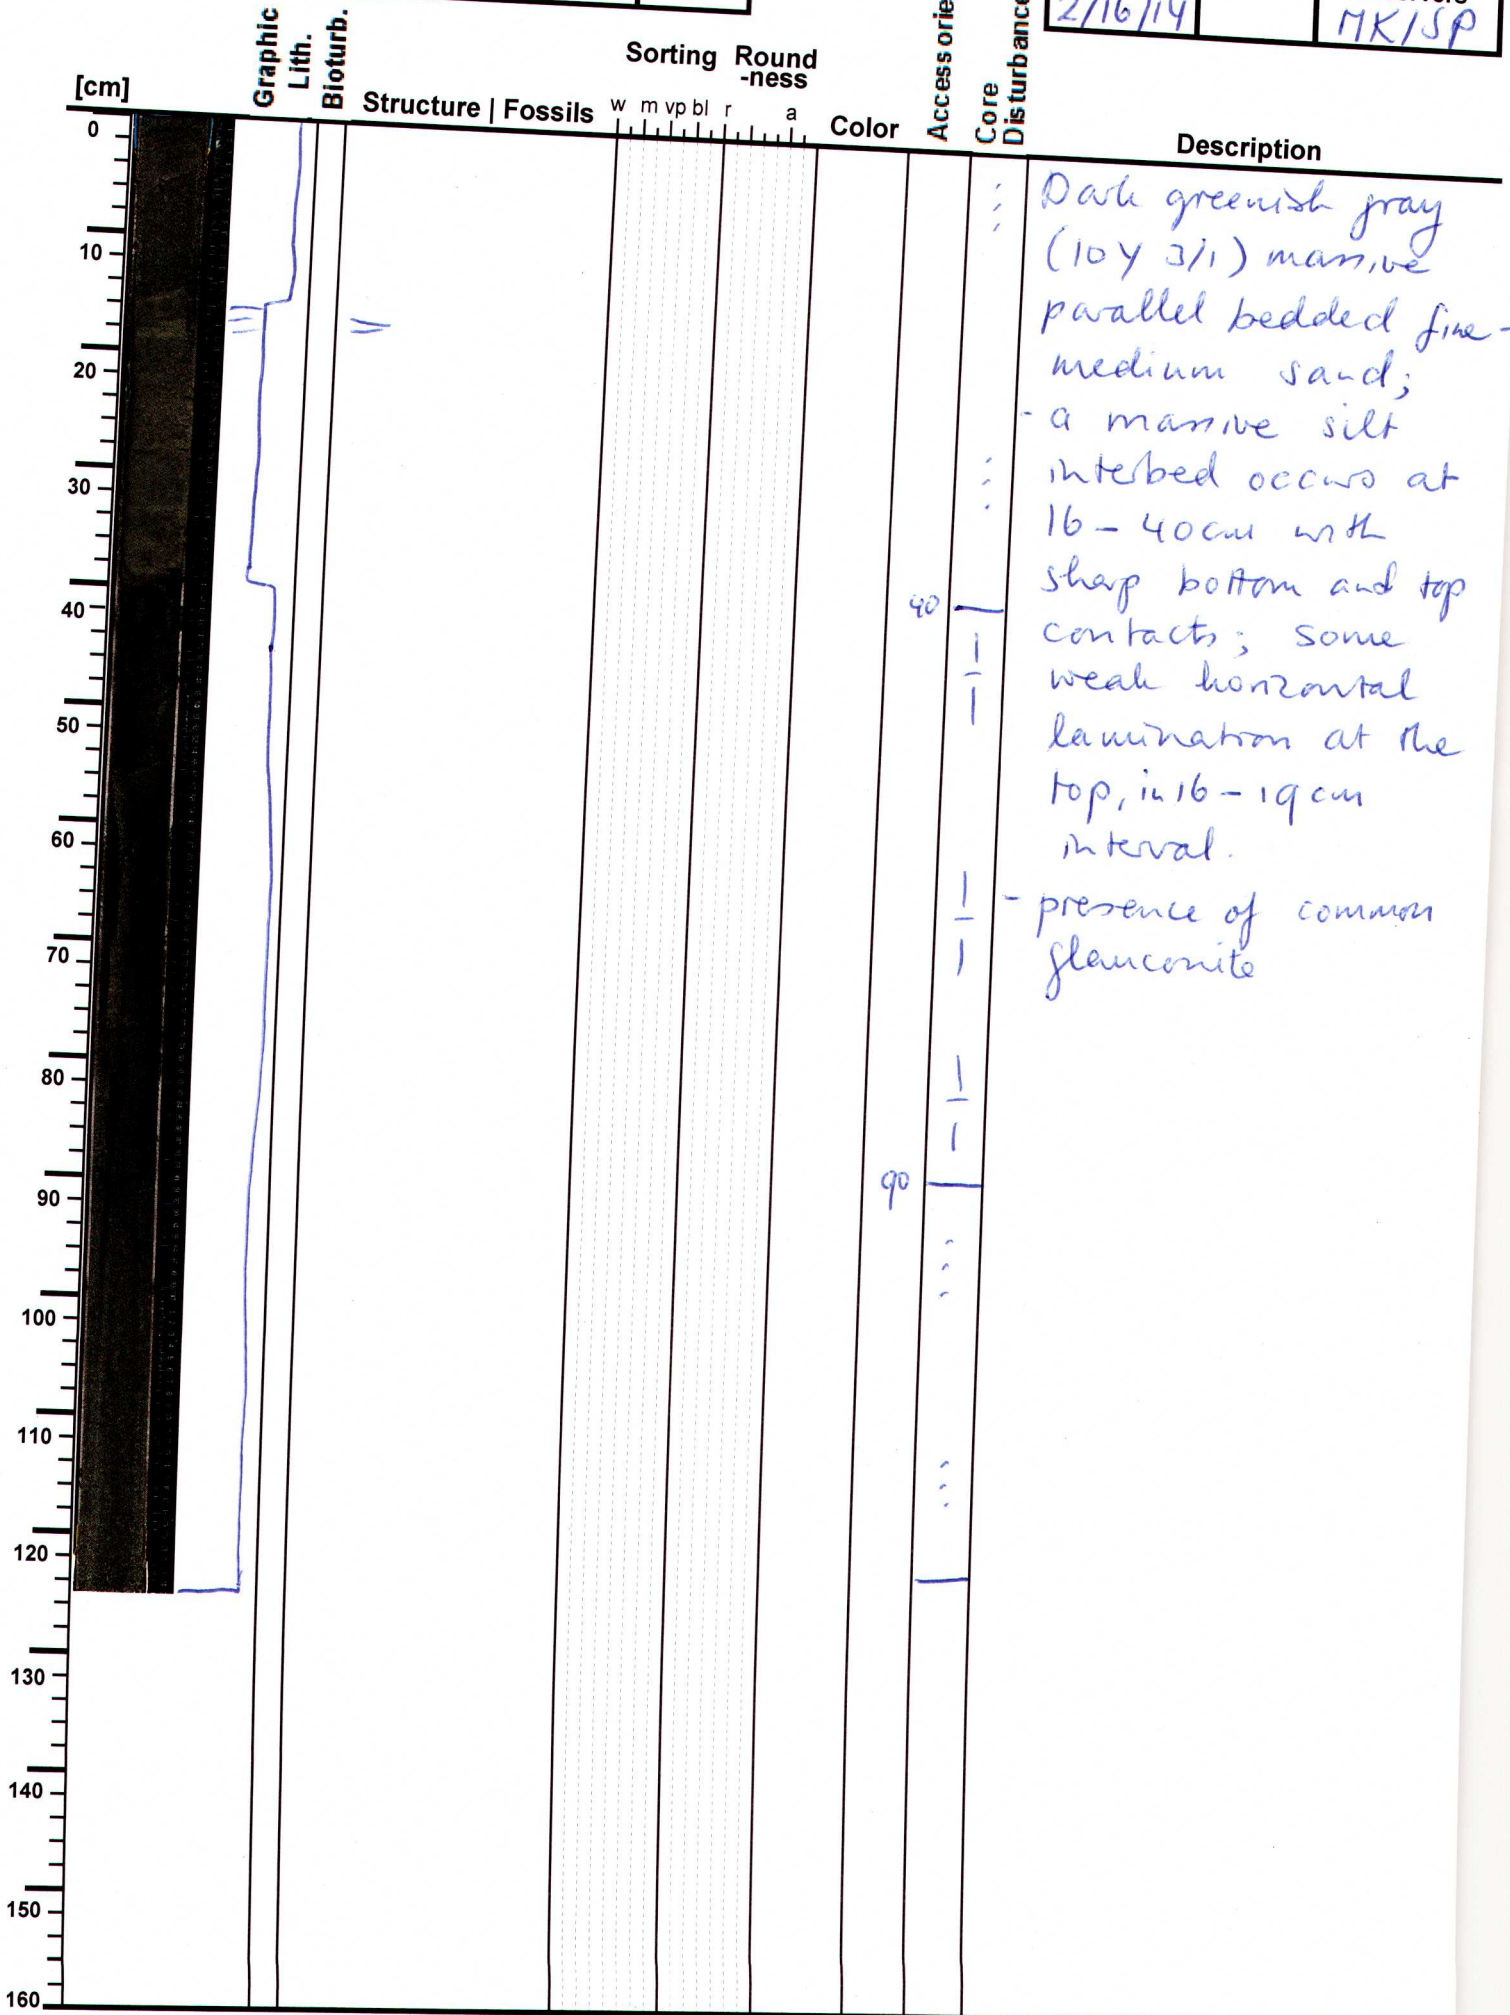 2/16/14 MK/SP
[cm] Graphic Lith. Bioturb. Structure | Fossils Sorting Round-ness Color Core Disturbance Description
w m vp bl r a
0
10
20
30
40
50
60
70
80
90
100
110
120
130
140
150
160
40
90
Dark greenish gray
(10Y 3/1) massive
parallel bedded fine-
medium sand;
- a massive silt
interbed occurs at
16 - 40cm with
sharp bottom and top
contacts; some
weak horizontal
lamination at the
top, in 16 - 19 cm
interval.
- presence of common
glauconite